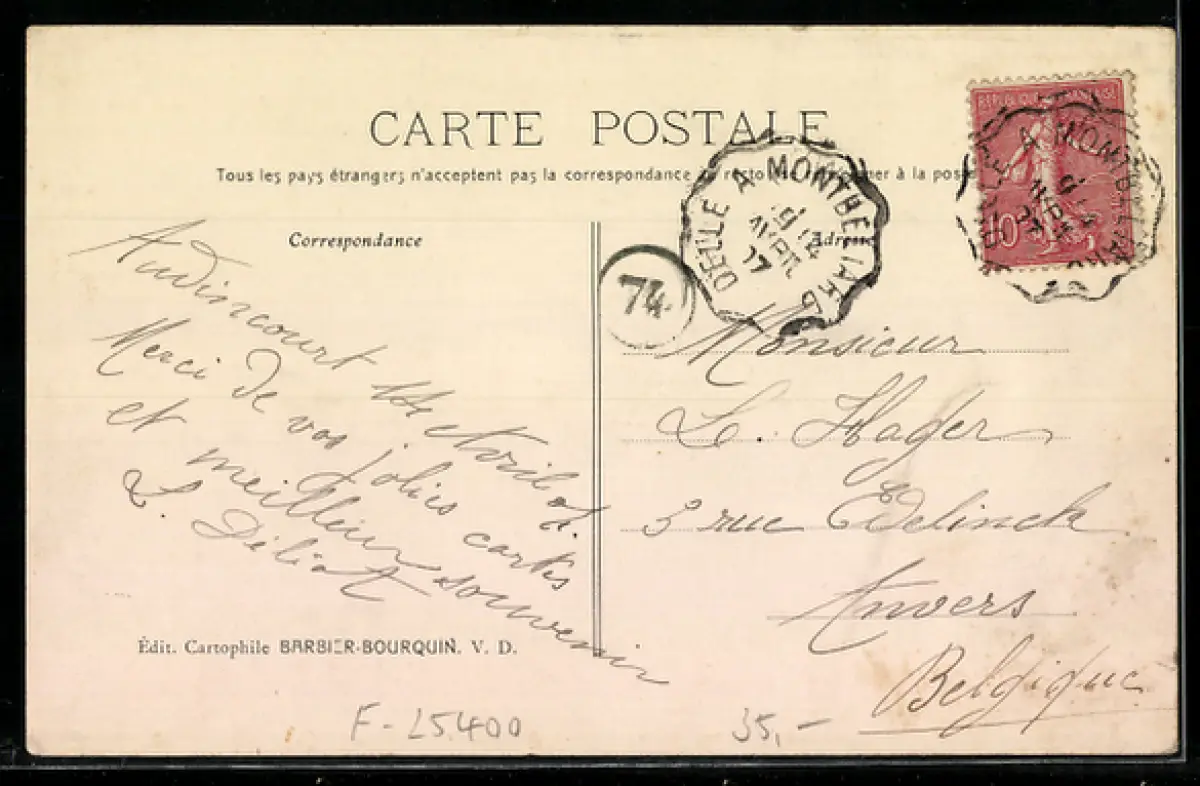 CARTE POSTALE
Tous les pays étrangers n'acceptent pas la correspondance au recto se à la poste
Correspondance
Adresse
Audincourt 14 Avril 07.
Merci de vos jolies cartes
et meilleur souvenir
L. Déliot
DELLE A MONTBELIARD
14
AVRIL
07
74
REPUBLIQUE FRANÇAISE
10
DELLE A MONTBELIARD
Monsieur
L. Hager
3 rue Edelinck
Anvers
Belgique
Édit. Cartophile BARBIER-BOURQUIN. V. D.
F-25400
35,-